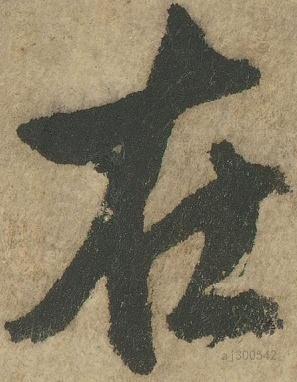 在
aj300542